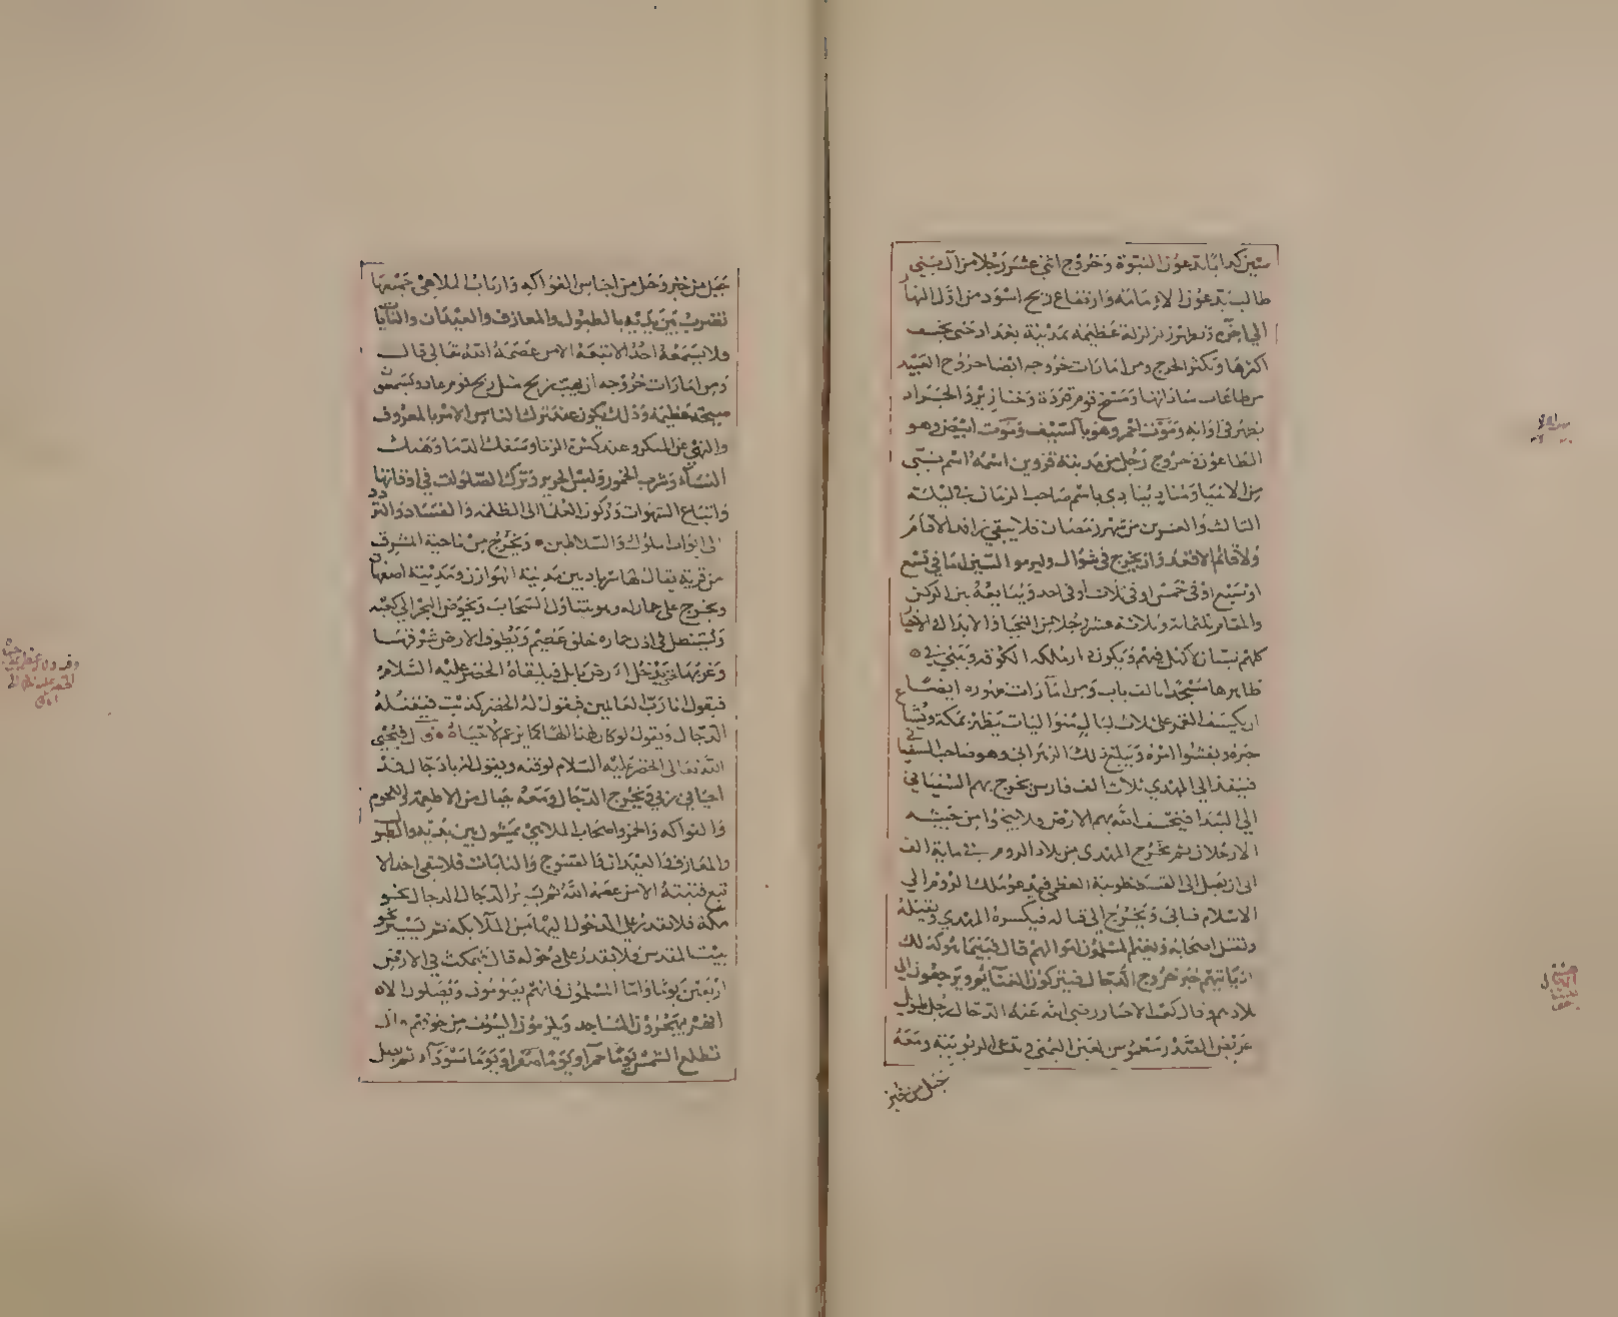 ستين كذابا يدعون النبوة وخروج اثني عشر رجلا من آل بني
طالب يدعون الامامة وارتفاع ريح اسود من اول النهار
الي اخره وتظهر زلزلة عظيمة بمدينة بغداد حتى يخسف
اكثرها ويكثر الهرج ومن امارات خروجه ايضا خروج العبيد
من طاعات ساداتها ومسخ قوم قردة وخنازير والجراد
يظهر في اوانه وموت احمر وهو بالسيف وموت ابيض وهو
الطاعون وخروج رجل من مدينة قزوين اسمه اسم نبي
من الانبيا ومناد ينادي باسم صاحب الزمان في ليلة
الثالث والعشرين من شهر رمضان فلا يبقي راقد الا قام
ولا قائم الا قعد وانه يخرج في شوال وليرمو السنين اما في تسع
او سبع او في خمس او في ثلاث او في احد ويبايعه بين الركن
والمقام ثلثماية وثلاثة عشر رجلا من النجبا والابدال والاخيار
كلهم شبان لا كهل فيهم ويكون دار ملكه الكوفة ويبني في
ظاهرها مسجدا بالف باب ومن امارات ظهوره ايضا
ان يكسف القمر على ثلاث ليال متواليات يظهر بمكة ويشاع
خبره ويفشوا امره ويبلغ ذلك الزهراني وهو صاحب السفياني
فينفذ الي المهدي ثلاث الف فارس يخرج بهم السفياني
الي البيدا فيخسف الله بهم الارض ولا ينجوا من جيشه
الا رجلان ثم يخرج المهدي من بلاد الروم في ماية الف
الى ان يصل الى القسطنطونية العظمي فيدعو ملك الروم الي
الاسلام فيابى ويخرج الي قتاله فيكسره المهدي ويقتله
وتقتل اصحابه ويغنم المسلمون اموالهم قال فبينما هو كذلك
اذ ياتيهم خبر خروج الدجال فيتركون الغنايم ويرجعون الي
بلادهم وقال كعب الاحبار رضي الله عنه الدجال رجل طويل
عريض الصدر مطموس العين اليمني يدعي الربوبية ومعه
جبل من خبز
جبل من خبز وجبل من اجناس الفواكه وارباب الملاهي جميعها
تضرب بين يديه بالطبول والمعازف والعيدان والنايات
فلا يسمعه احد الا تبعه الا من عصمه الله تعالى قال
ومن امارات خروجه ان يهب ريح مثل ريح قوم عاد ويسمعون
صيحة عظيمة وذلك يكون عند ترك الناس الامر بالمعروف
والنهي عن المنكر وعند كثرة الزنا وسفك الدما وهتك
النساء وشرب الخمور ولبس الحرير وترك الصلوات في اوقاتها
واتباع الشهوات وركون العلما الى الظلمة والفساد والتردد
الى ابواب الملوك والسلاطين ويخرج من ناحية المشرق
من قرية يقال لها بين مدينة الهوازن ومدينة اصفهان
ويخرج على حماره وهو يتناول السحاب ويخوض البحر الي كعبه
ويستظل في اذن حماره خلق عظيم ويطوف الارض شرقها
وغربها حتي يدخل ارض بابل فيلقاه الخضر عليه السلام
فيقول انا رب العالمين فيقول له الخضر كذبت فيقتله
الدجال ويقول لو كان لهذا اله كما يزعم لاحياه قال فيحيي
الله تعالى الخضر عليه السلام لوقته ويقول له يا دجال قد
احياني ربي ويخرج الدجال ومعه جبال من الاطعمة واللحوم
والفواكه والخمر واصحاب الملاهي يمشون بين يديه والطبول
والمعازف والعيدان والصنوج والنايات فلا يبقى احد الا
تبع فتنته الا من عصمه الله ثم يسير الدجال نحو
مكة فلا يقدر على الدخول اليها من الملايكة ثم يسير نحو
بيت المقدس ولا يقدر على دخوله قال ثم يمكث في الارض
اربعين يوما واما المسلمون فانهم يصومون ويصلون الا
انهم يهجرون المساجد ويلزمون البيوت من خوفهم قال
تطلع الشمس يوما حمرا ويوما صفرا ويوما سوداء ثم يصل